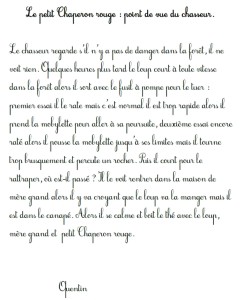 Le petit Chaperon rouge : point de vue du chasseur.
Le chasseur regarde s'il n'y a pas de danger dans la forêt, il ne
voit rien. Quelques heures plus tard le loup court à toute vitesse
dans la forêt alors il sort avec le fusil à pompe pour le tuer :
premier essai il le rate mais c'est normal il est trop rapide alors il
prend la mobylette pour aller à sa poursuite, deuxième essai encore
raté alors il pousse la mobylette jusqu'à ses limites mais il tourne
trop brusquement et percute un rocher. Puis il court pour le
rattraper, où est-il passé ? Il le voit rentrer dans la maison de
mère grand alors il y va croyant que le loup va le manger mais il
est dans le canapé. Alors il se calme et boit le thé avec le loup,
mère grand et petit Chaperon rouge.
Quentin